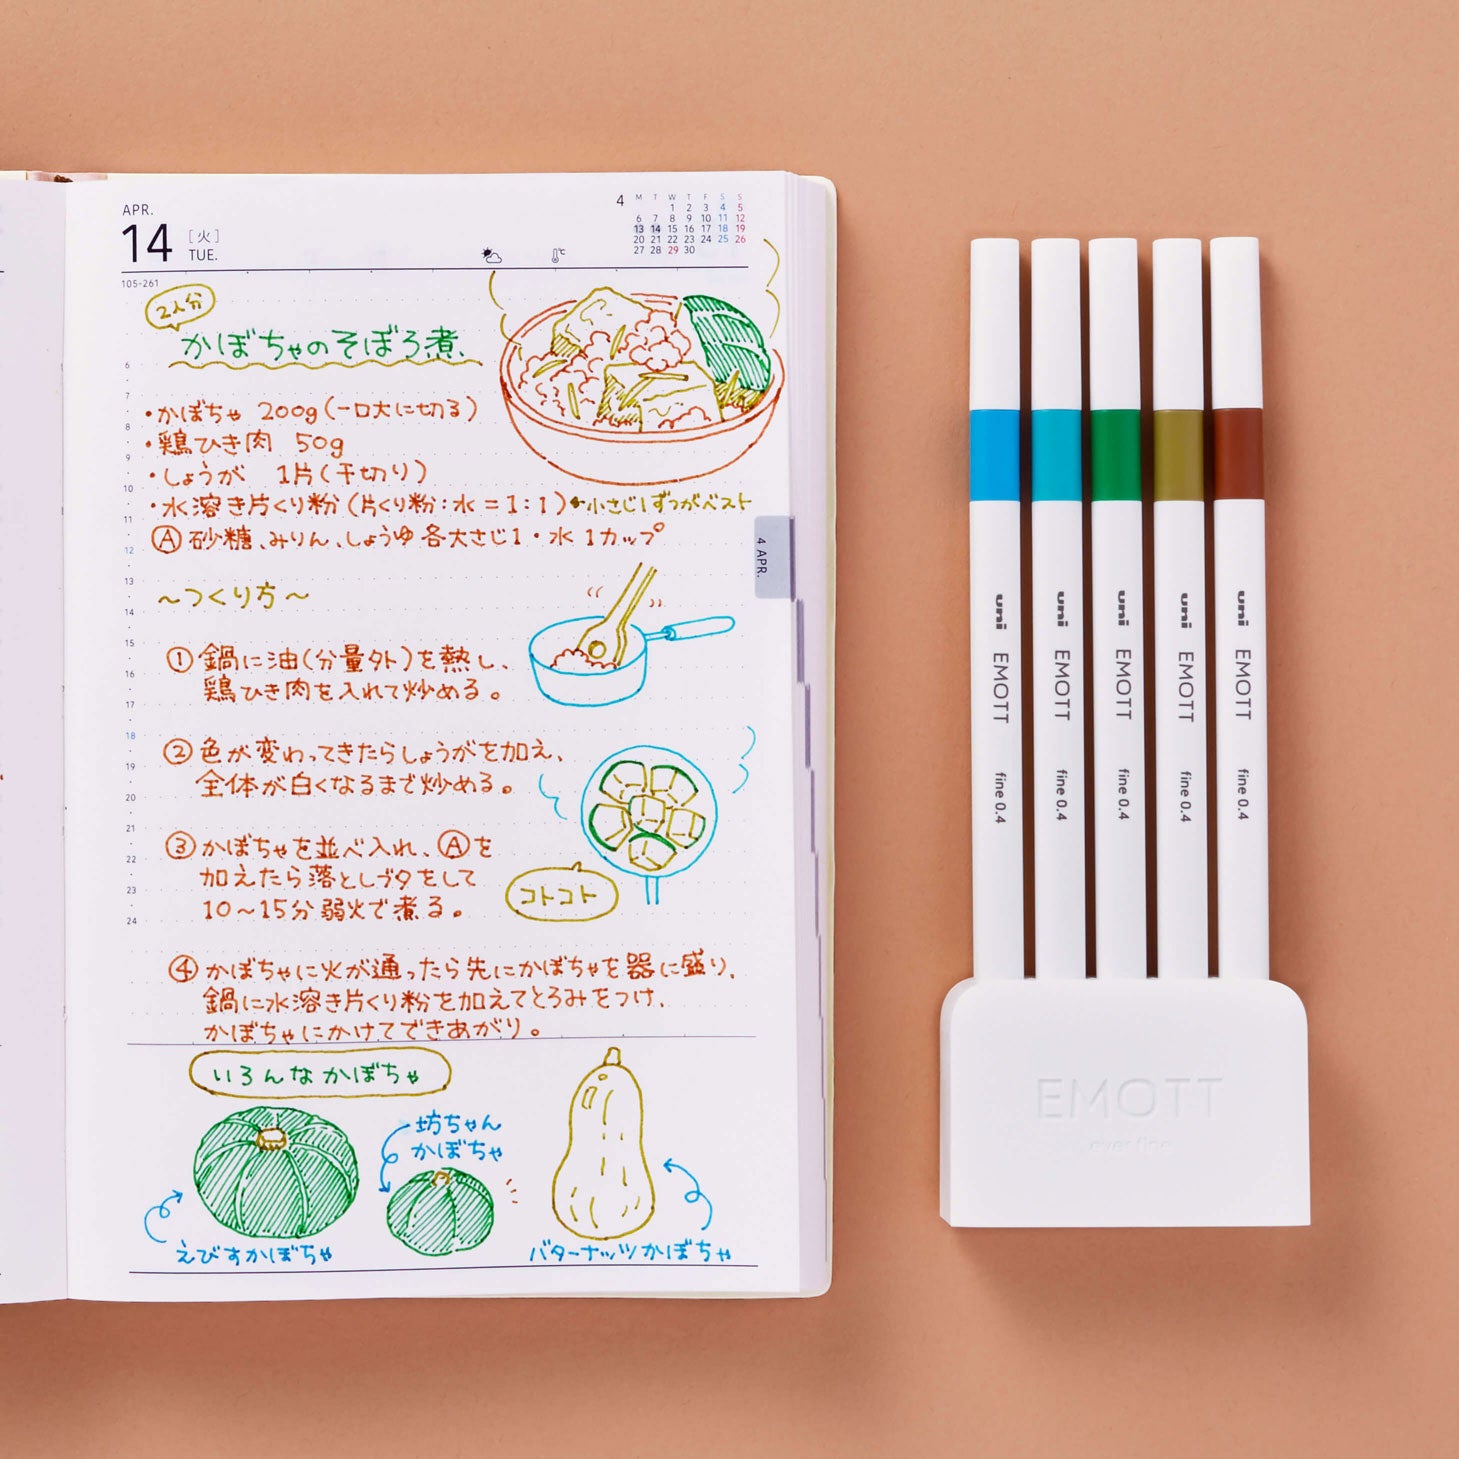 APR.
14 [火]
TUE.
105-261
4
M T W T F S S
1 2 3 4 5
6 7 8 9 10 11 12
13 14 15 16 17 18 19
20 21 22 23 24 25 26
27 28 29 30
℃
2人分
かぼちゃのそぼろ煮、
・かぼちゃ 200g(一口大に切る)
・鶏ひき肉 50g
・しょうが 1片(千切り)
・水溶き片くり粉(片くり粉:水=1:1)←小さじ1ずつがベスト
Ⓐ 砂糖、みりん、しょうゆ各大さじ1・水1カップ
~つくり方~
① 鍋に油(分量外)を熱し、
鶏ひき肉を入れて炒める。
② 色が変わってきたらしょうがを加え、
全体が白くなるまで炒める。
③ かぼちゃを並べ入れ、Ⓐを
加えたら落としブタをして
10~15分弱火で煮る。
コトコト
④ かぼちゃに火が通ったら先にかぼちゃを器に盛り、
鍋に水溶き片くり粉を加えてとろみをつけ、
かぼちゃにかけてできあがり。
6
7
8
9
10
11
12
13
14
15
16
17
18
19
20
21
22
23
24
4 APR.
いろんなかぼちゃ
坊ちゃん
かぼちゃ
えびすかぼちゃ
バターナッツかぼちゃ
uni EMOTT fine 0.4
uni EMOTT fine 0.4
uni EMOTT fine 0.4
uni EMOTT fine 0.4
uni EMOTT fine 0.4
EMOTT
ever fine